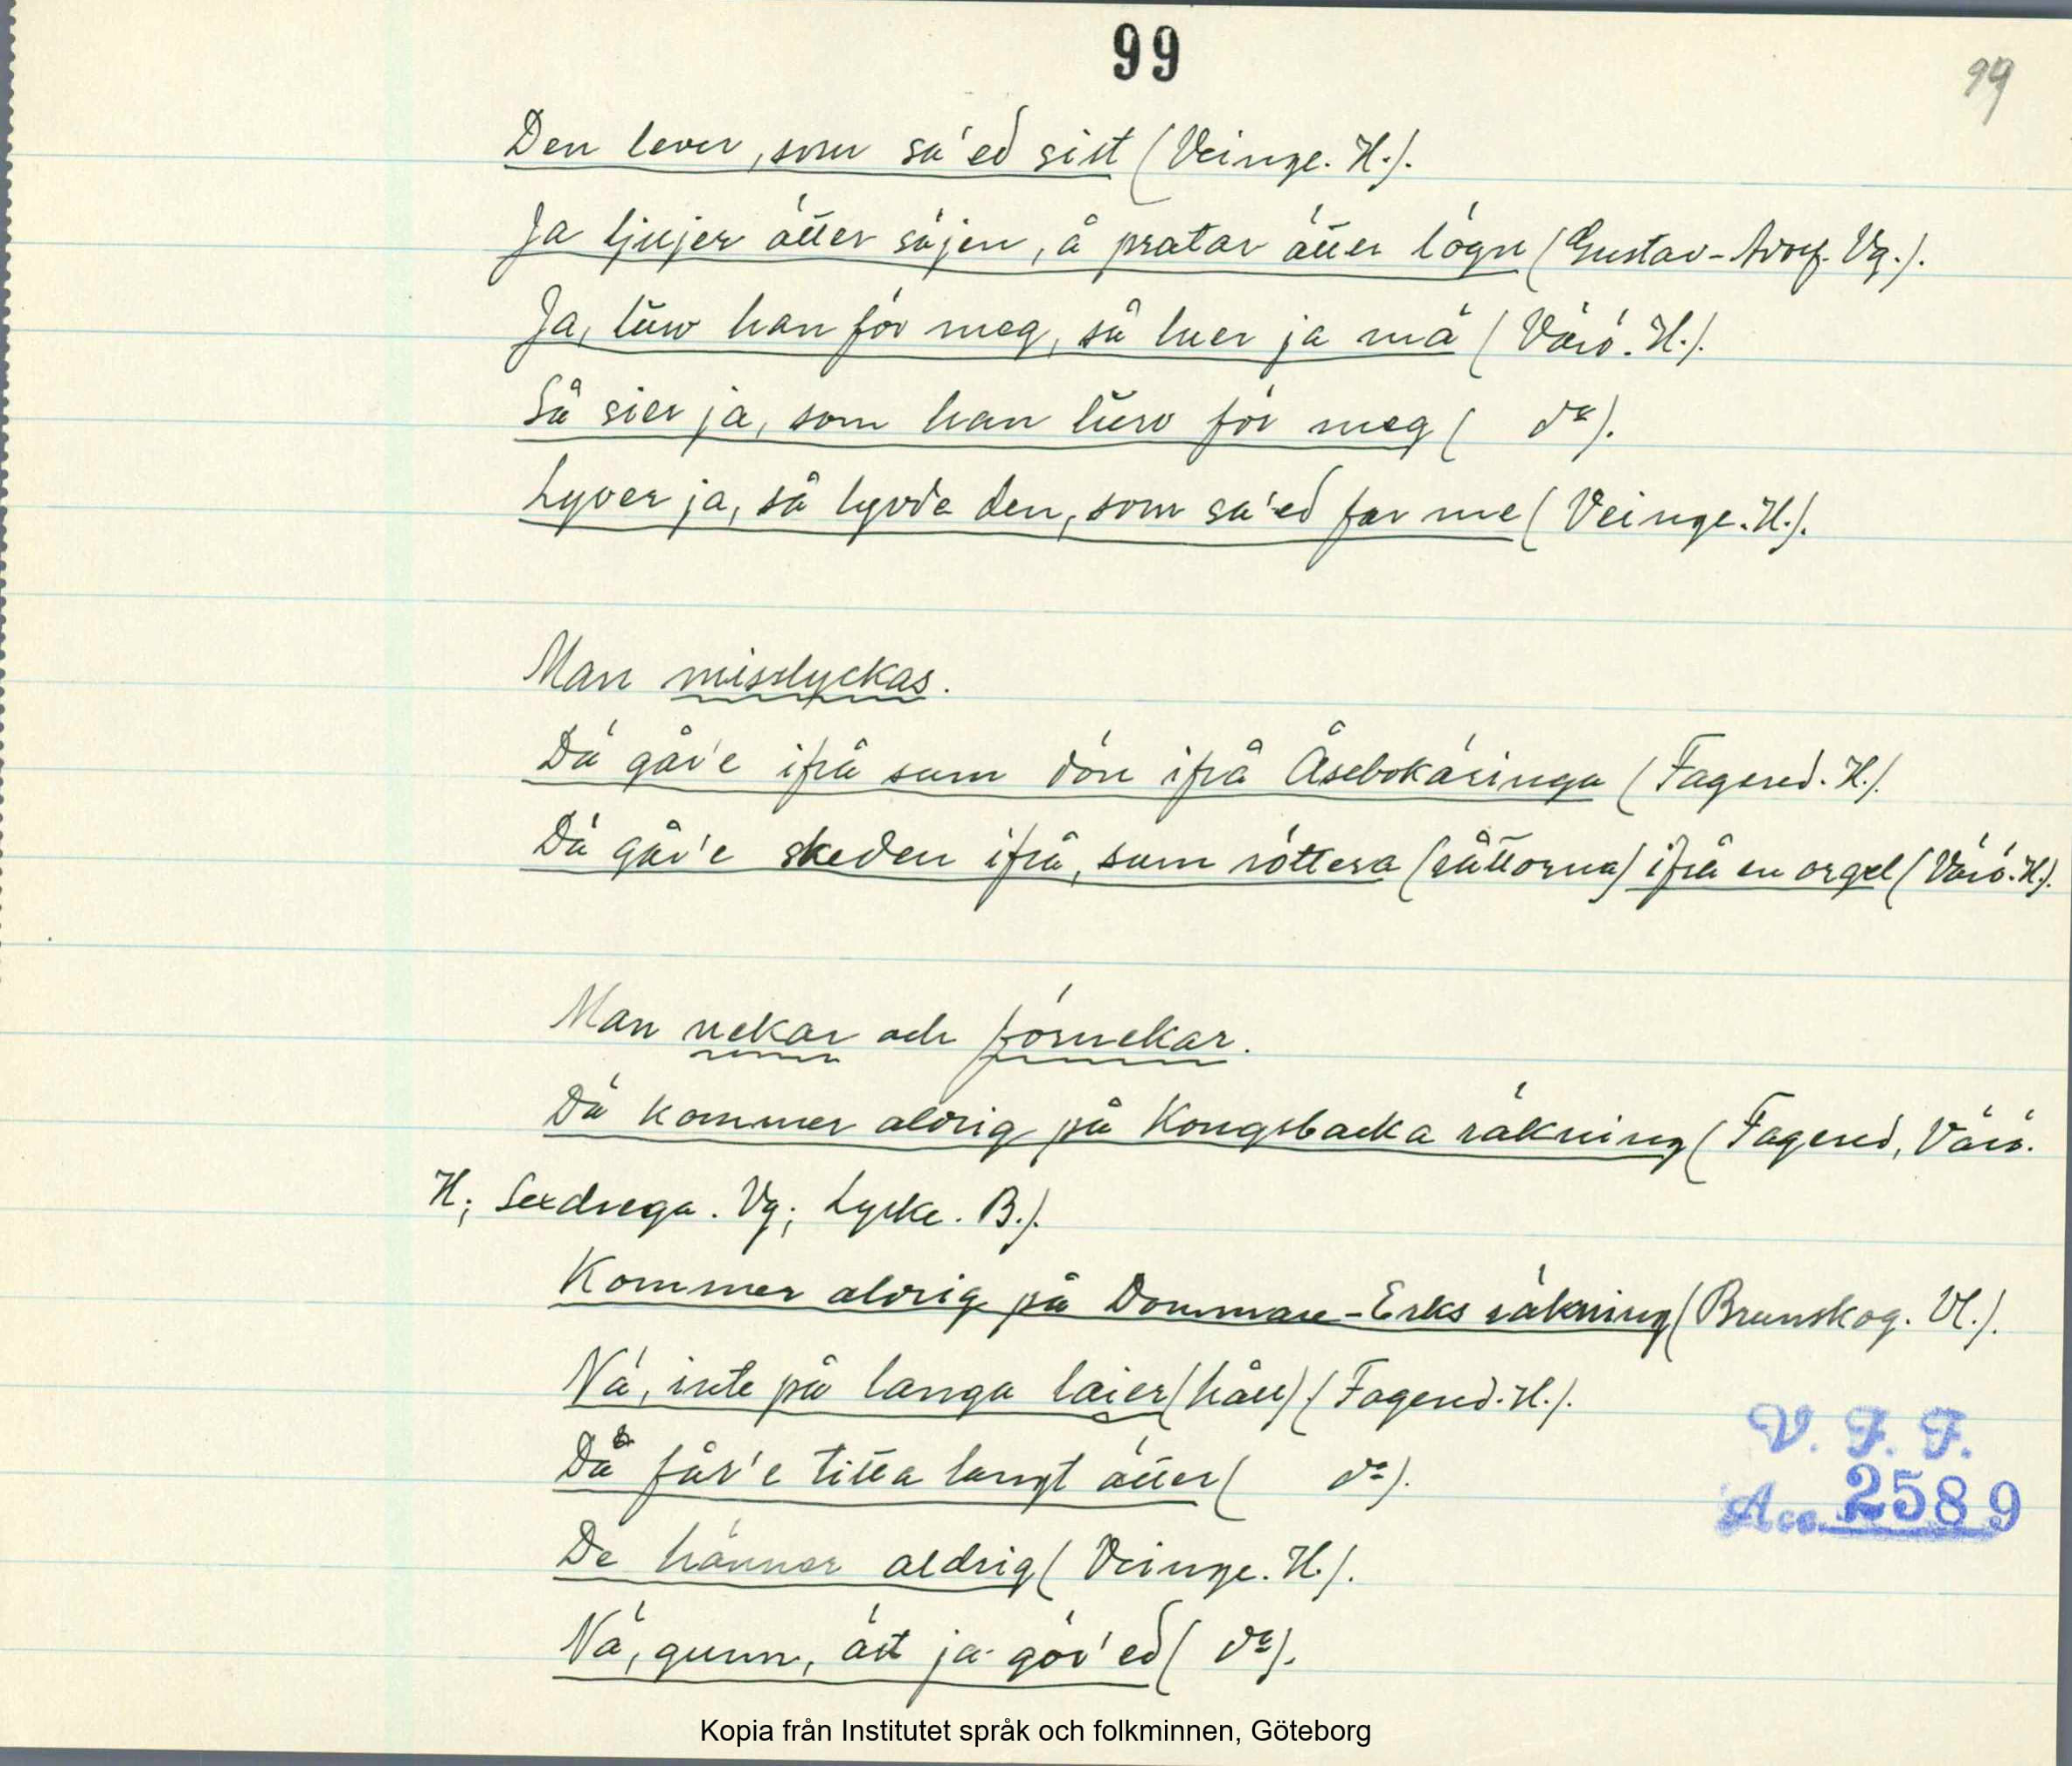 99
99
Den lever, som sa'ed sist (Veinge. H.).
Ja ljujer ätter säjen, å pratar ätter lögn (Gustav-Adolf. Vg.).
Ja, luw han för meg, så luer ja mä (Värö. H.).
Så sier ja, som han luw för meg ( do).
Lyver ja, så lyvde den, som sa'ed for me (Veinge. H.).
Man misslyckas.
Dä går'e ifrå sum dön ifrå Åsebokäringa (Fagered. H.).
Dä går'e skeden ifrå, sum röttera (råttorna) ifrå en orgel (Värö. H.).
Man nekar och förnekar.
Dä kommer aldrig på Kongsbacka räkning (Fagered, Värö.
H; Sexdrega. Vg; Lyske. B.).
Kommer aldrig på Dommare-Erks räkning (Brunskog. Vl.).
Nä, inte på langa laier (håll) (Fagered. H.).
Då får'e titta langt ätter ( do).
De hänner aldrig (Veinge. H.).
Nä, gunn, ätt ja gör'ed ( do).
V. F. F.
Acc. 2589
Kopia från Institutet språk och folkminnen, Göteborg